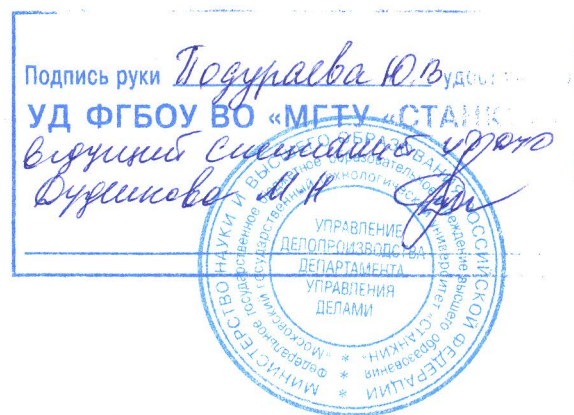 Подпись руки Подураева Ю.В. удост
УД ФГБОУ ВО «МГТУ «СТАНК
ведущий специалист
Дудникова М Н
МИНИСТЕРСТВО НАУКИ И ВЫСШЕГО ОБРАЗОВАНИЯ РОССИЙСКОЙ ФЕДЕРАЦИИ
Федеральное государственное бюджетное образовательное учреждение высшего образования
«Московский государственный технологический университет «СТАНКИН»
УПРАВЛЕНИЕ
ДЕЛОПРОИЗВОДСТВА
ДЕПАРТАМЕНТА
УПРАВЛЕНИЯ
ДЕЛАМИ